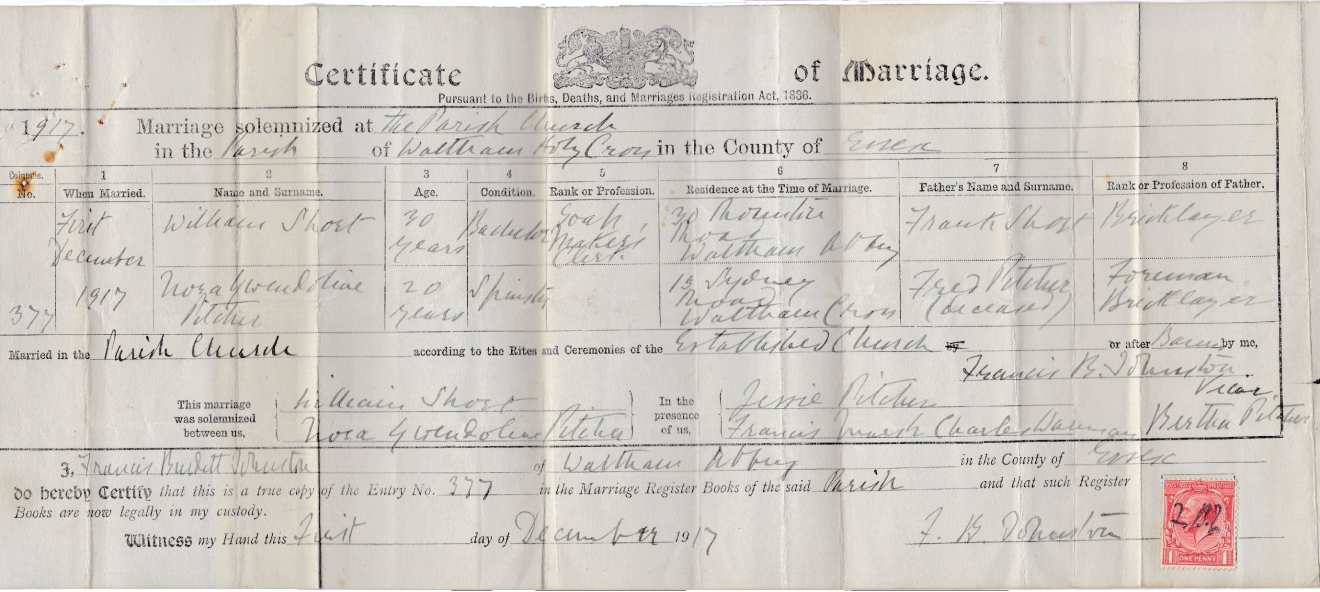 Certificate of Marriage.
Pursuant to the Births, Deaths, and Marriages Registration Act, 1836.
1917. Marriage solemnized at the Parish Church
in the Parish of Waltham Holy Cross in the County of Essex
Columns. 1 2 3 4 5 6 7 8
No. When Married. Name and Surname. Age. Condition. Rank or Profession. Residence at the Time of Marriage. Father's Name and Surname. Rank or Profession of Father.
First December 1917
377
William Short 30 years Bachelor Maker's Clerk 30 Road Waltham Abbey Frank Short Bricklayer
Nora Gwendoline Pitcher 20 years Spinster 13 Sydney Road Waltham Cross Fred Pitcher (deceased) Foreman Bricklayer
Married in the Parish Church according to the Rites and Ceremonies of the Established Church by or after Banns by me,
Francis B. Johnston. Vicar
This marriage was solemnized between us,
William Short
Nora Gwendoline Pitcher
In the presence of us,
Jessie Pitcher
Francis Charles Bertha Pitcher
I, Francis Burdett Johnston of Waltham Abbey in the County of Essex
do hereby Certify that this is a true copy of the Entry No. 377 in the Marriage Register Books of the said Parish and that such Register
Books are now legally in my custody.
Witness my Hand this First day of December 1917 F. B. Johnston
1 ONE PENNY 1